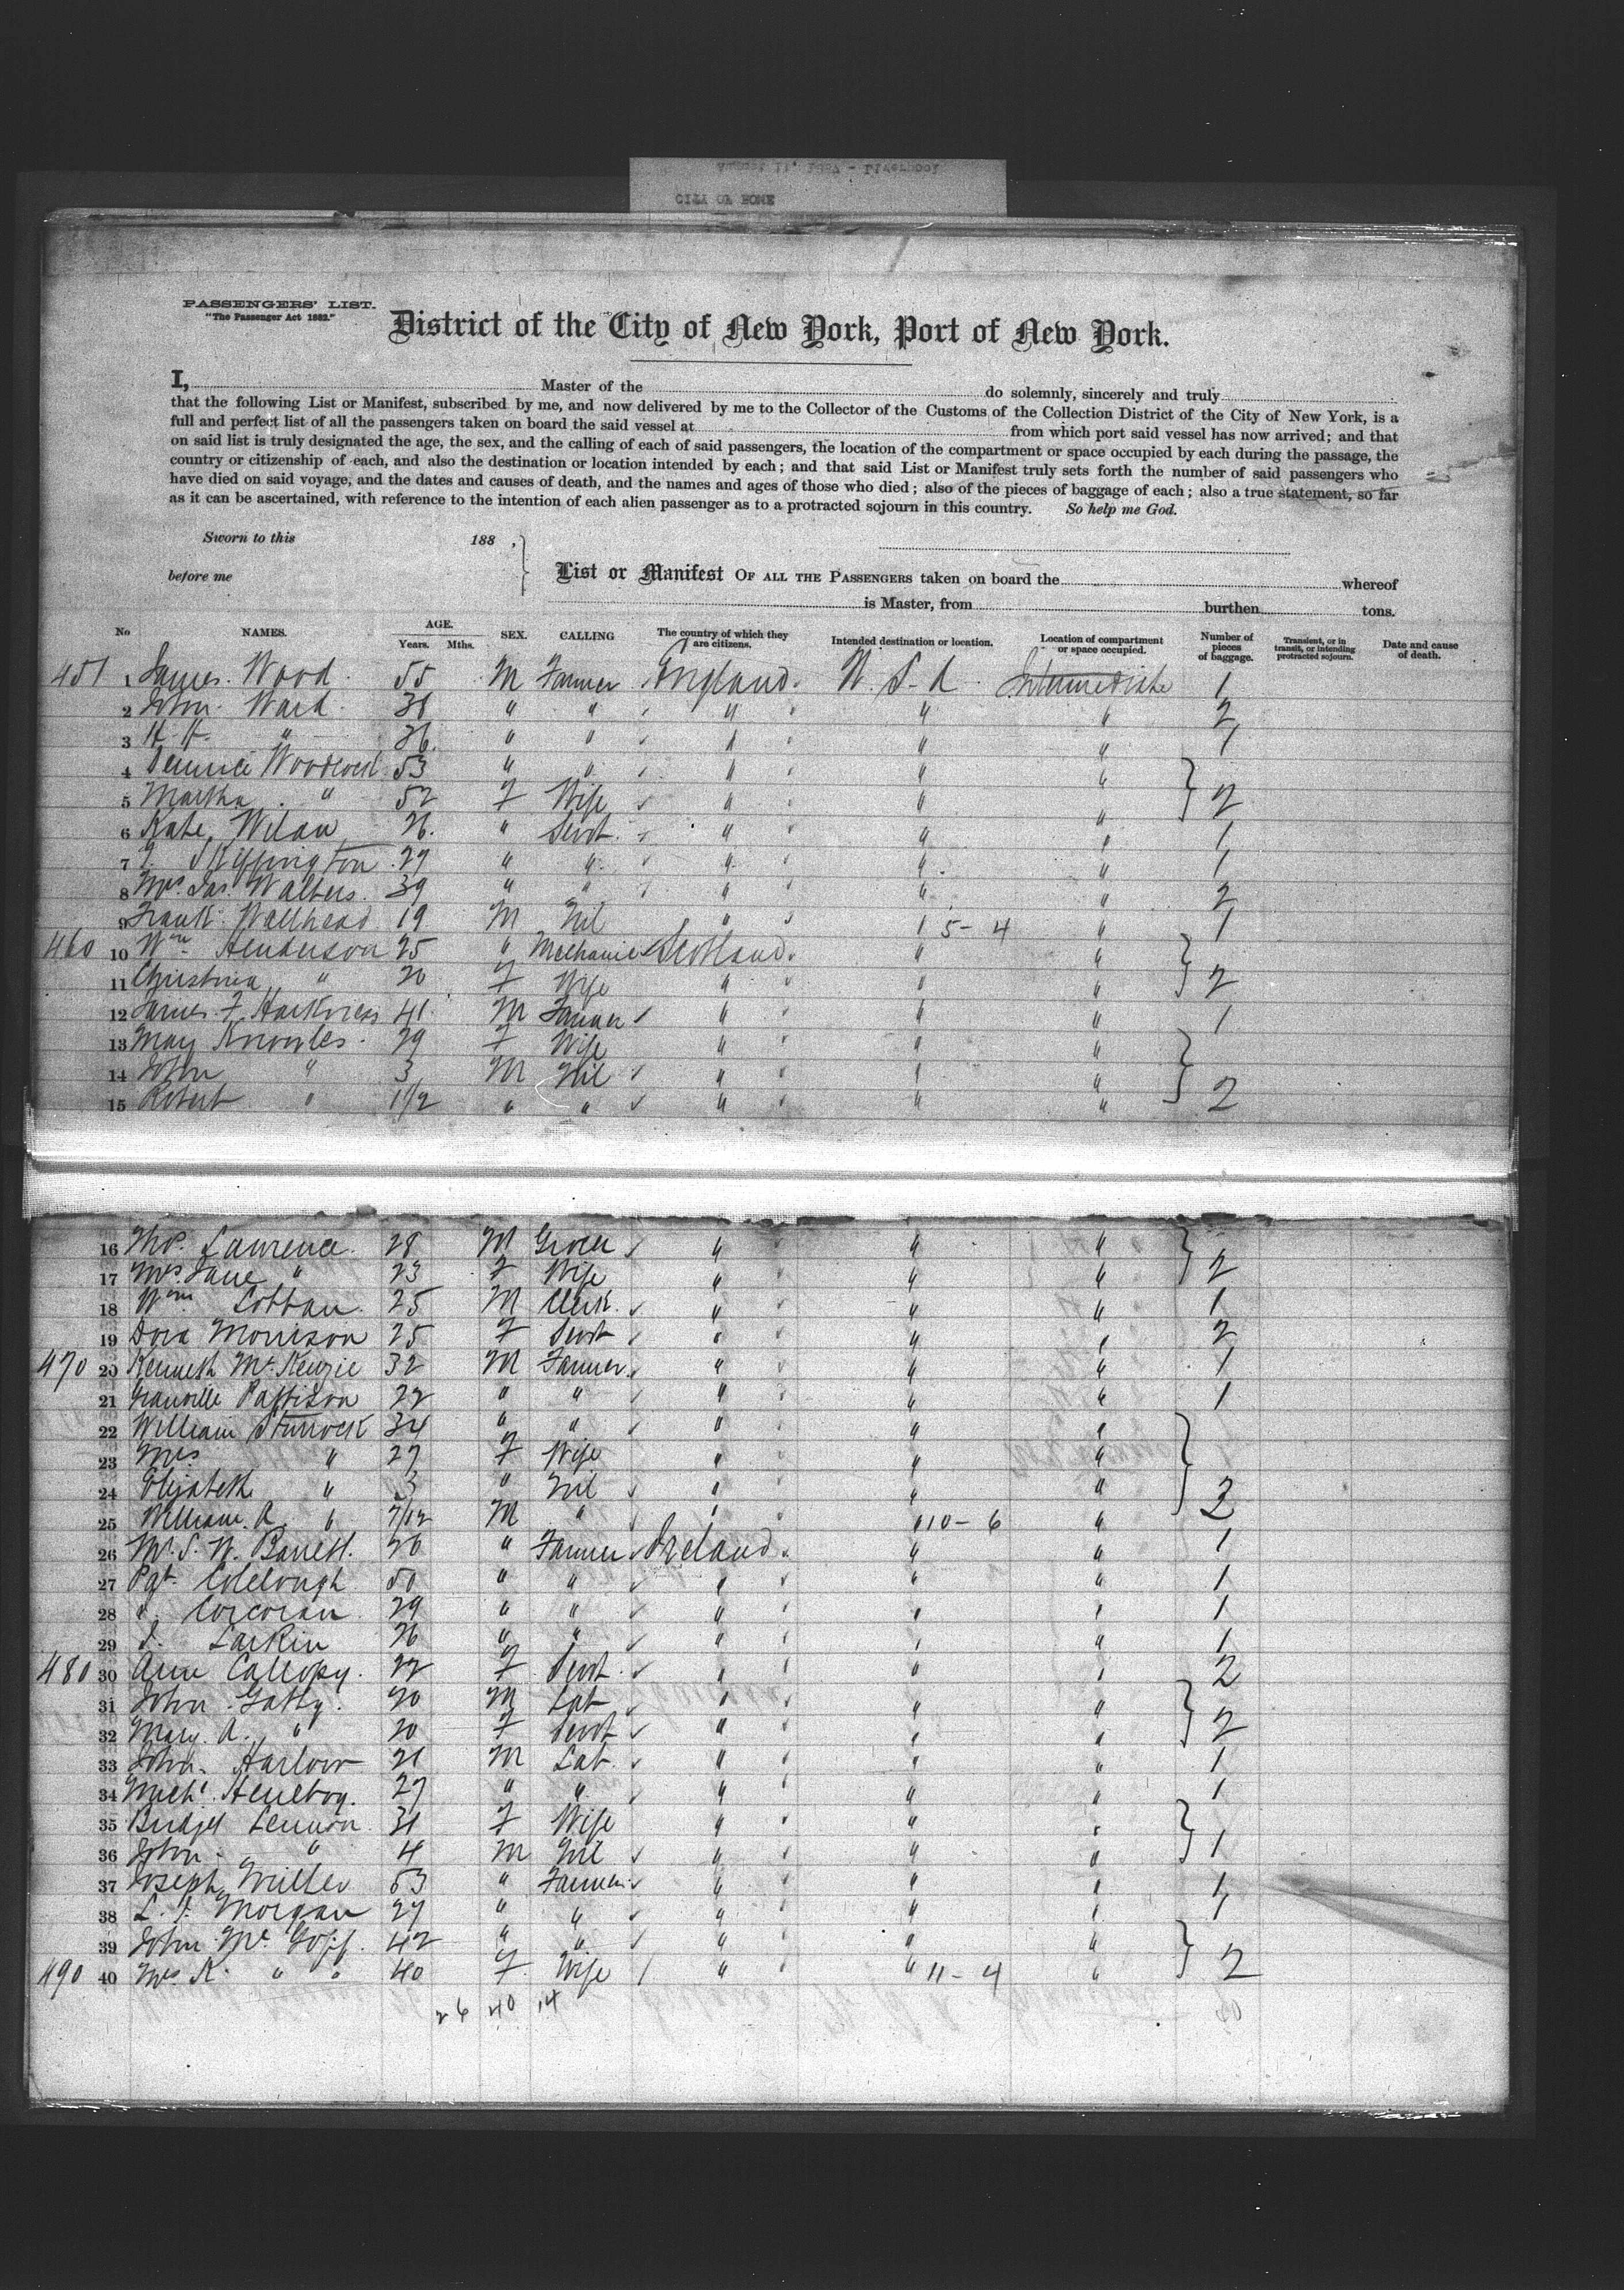 CITY OF ROME
August 11, 1887 - Liverpool
PASSENGERS' LIST.
"The Passenger Act 1882."
District of the City of New York, Port of New York.
I, Master of the do solemnly, sincerely and truly
that the following List or Manifest, subscribed by me, and now delivered by me to the Collector of the Customs of the Collection District of the City of New York, is a
full and perfect list of all the passengers taken on board the said vessel at from which port said vessel has now arrived; and that
on said list is truly designated the age, the sex, and the calling of each of said passengers, the location of the compartment or space occupied by each during the passage, the
country or citizenship of each, and also the destination or location intended by each; and that said List or Manifest truly sets forth the number of said passengers who
have died on said voyage, and the dates and causes of death, and the names and ages of those who died; also of the pieces of baggage of each; also a true statement, so far
as it can be ascertained, with reference to the intention of each alien passenger as to a protracted sojourn in this country. So help me God.
Sworn to this 188 ,
before me
List or Manifest OF ALL THE PASSENGERS taken on board the whereof
is Master, from burthen tons.
No NAMES. AGE. Years. Mths. SEX. CALLING The country of which they are citizens. Intended destination or location. Location of compartment or space occupied. Number of pieces of baggage. Transient, or in transit, or intending protracted sojourn. Date and cause of death.
451 1 James Wood 55 M Farmer England U.S.A Intermediate 1
2 John Ward 38 " " " " " 2
3 H. H. " 36 " " " " " 1
4 Woodcock 53 " " " " "
5 Martha " 52 F Wife " " " 2
6 Kate Wilan 26 " Servt " " " 1
7 Skeffington 27 " " " " " 1
8 Mrs Jas Walters 39 " " " " " 2
9 Frank Wellhead 19 M Nil " " 5-4 " 1
460 10 Wm Henderson 25 " Mechanic Scotland " "
11 Christina " 20 F Wife " " " 2
12 James F. Harkness 41 M Farmer " " " 1
13 May Knowles 29 F Wife " " "
14 John " 3 M Nil " " "
15 Robert " 1/2 " " " " " 2
16 Thos. Lawrence 28 M Grocer " " "
17 Mrs Jane " 23 F Wife " " " 2
18 Wm Cobban 25 M Clerk " " " 1
19 Dora Morrison 25 F Servt " " " 2
470 20 Kenneth McKenzie 32 M Farmer " " " 1
21 Granville Pattison 22 " " " " " 1
22 William Sturrock 34 " " " " "
23 Mrs " 27 F Wife " " "
24 Elizabeth " 3 " Nil " " "
25 William A. " 7/12 M " " " 10-6 " 2
26 Mr. S. W. Barrett 26 " Farmer Ireland " " 1
27 Pat. Colclough 50 " " " " " 1
28 " Corcoran 29 " " " " " 1
29 J. Larkin 26 " " " " " 1
480 30 Ann Callopy 22 F Servt " " " 2
31 John Gatty 20 M Lab " " "
32 Mary A. " 20 F Servt " " " 2
33 John Harlow 21 M Lab " " " 1
34 Michl. Heneboy 27 " " " " " 1
35 Bridget Lennon 31 F Wife " " "
36 John " 4 M Nil " " " 1
37 Joseph Miller 53 " Farmer " " " 1
38 L. F. Morgan 27 " " " " " 1
39 John McGoff 42 " " " " "
490 40 Mrs K. " " 40 F Wife " " 11-4 " 2
26 40 14